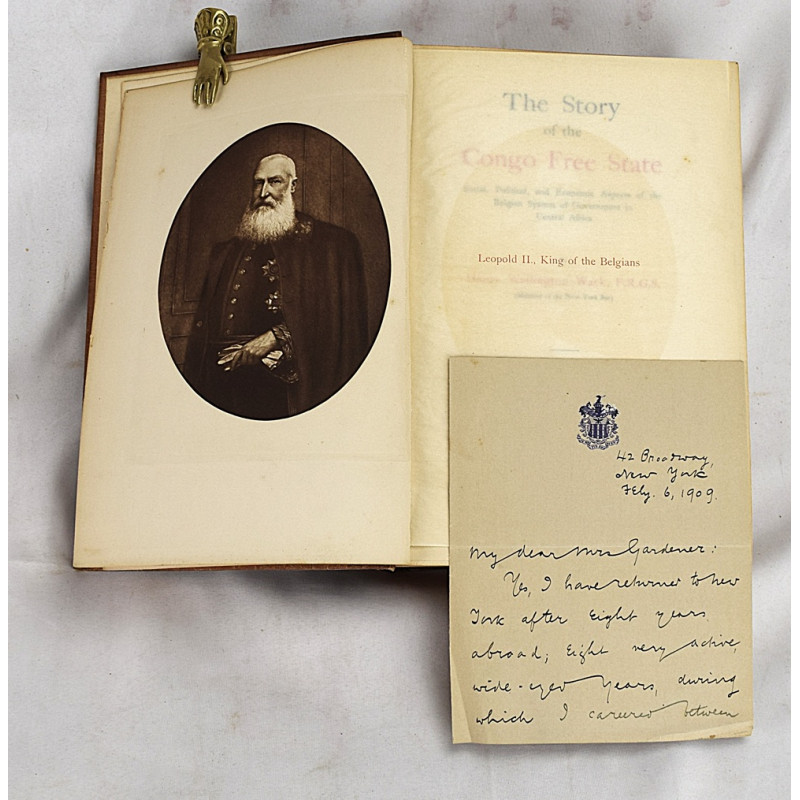 The Story
of the
Congo Free State
Social, Political, and Economic Aspects of the
Belgian System of Government in
Central Africa
Leopold II., King of the Belgians
Wack, F.R.G.S.
(Member of the New York Bar)
42 Broadway,
New York
Feby. 6, 1909.
My dear Mrs Gardener:
Yes, I have returned to New
York after Eight years
abroad; Eight very active,
wide-eyed years, during
which I careered between